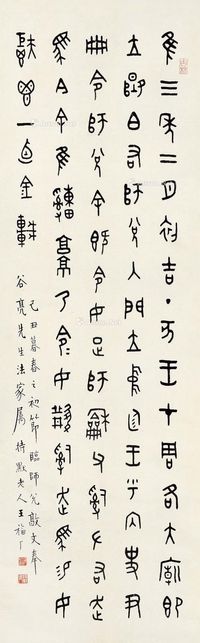 隹三年二月初吉丁亥王才周各大廟即
立𤞷白右師兌入門立中廷王乎內史尹
冊令師兌余既令女疋師龢父𤔲左右走
馬今余隹䌛𩫨乃令令女𤔲走馬易女
秬鬯一卣金車
己丑暮春之初節臨師兌敦文奉
谷亮先生法家屬 持默老人王福厂